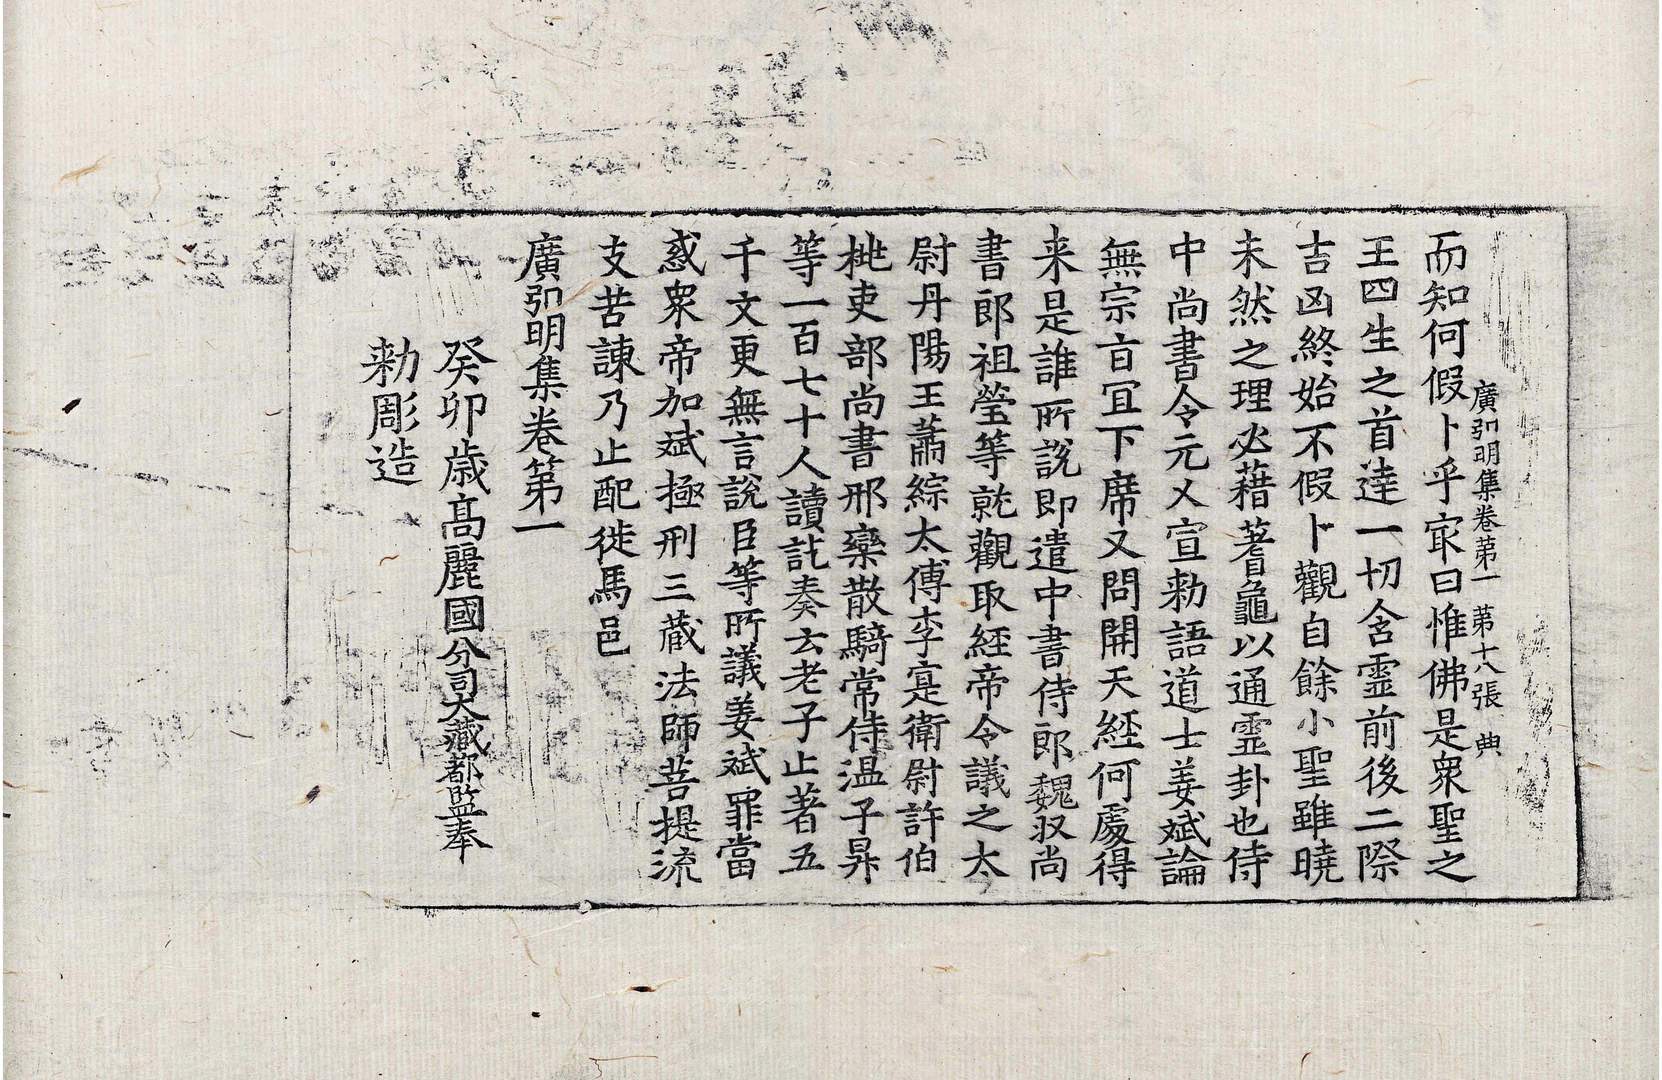 廣弘明集卷第一 第十八張 典
而知何假卜乎㝡曰惟佛是衆聖之
王四生之首達一切含靈前後二際
吉凶終始不假卜觀自餘小聖雖曉
未然之理必藉蓍龜以通靈卦也侍
中尚書令元乂宣勑語道士姜斌論
無宗旨冝下席又問開天經何處得
来是誰所說即遣中書侍郎魏收尚
書郎祖瑩等就觀取經帝令議之太
尉丹陽王蕭綜太傅李寔衛尉許伯
桃吏部尚書邢欒散騎常侍温子昇
等一百七十人讀訖奏云老子止著五
千文更無言說臣等所議姜斌罪當
惑衆帝加斌極刑三藏法師菩提流
支苦諫乃止配徙馬邑
廣弘明集卷第一
癸卯歲高麗國分司大藏都監奉
勑彫造